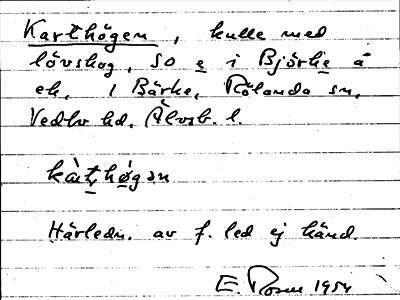 Karthögen, kulle med
lövskog, SO e i Björke å
ek. 1 Bärke, Rölanda sn,
Vedbo hd. Älvsb. l.
kàt, høgən
Härledn. av f. led ej känd.
E. Rosm 1954